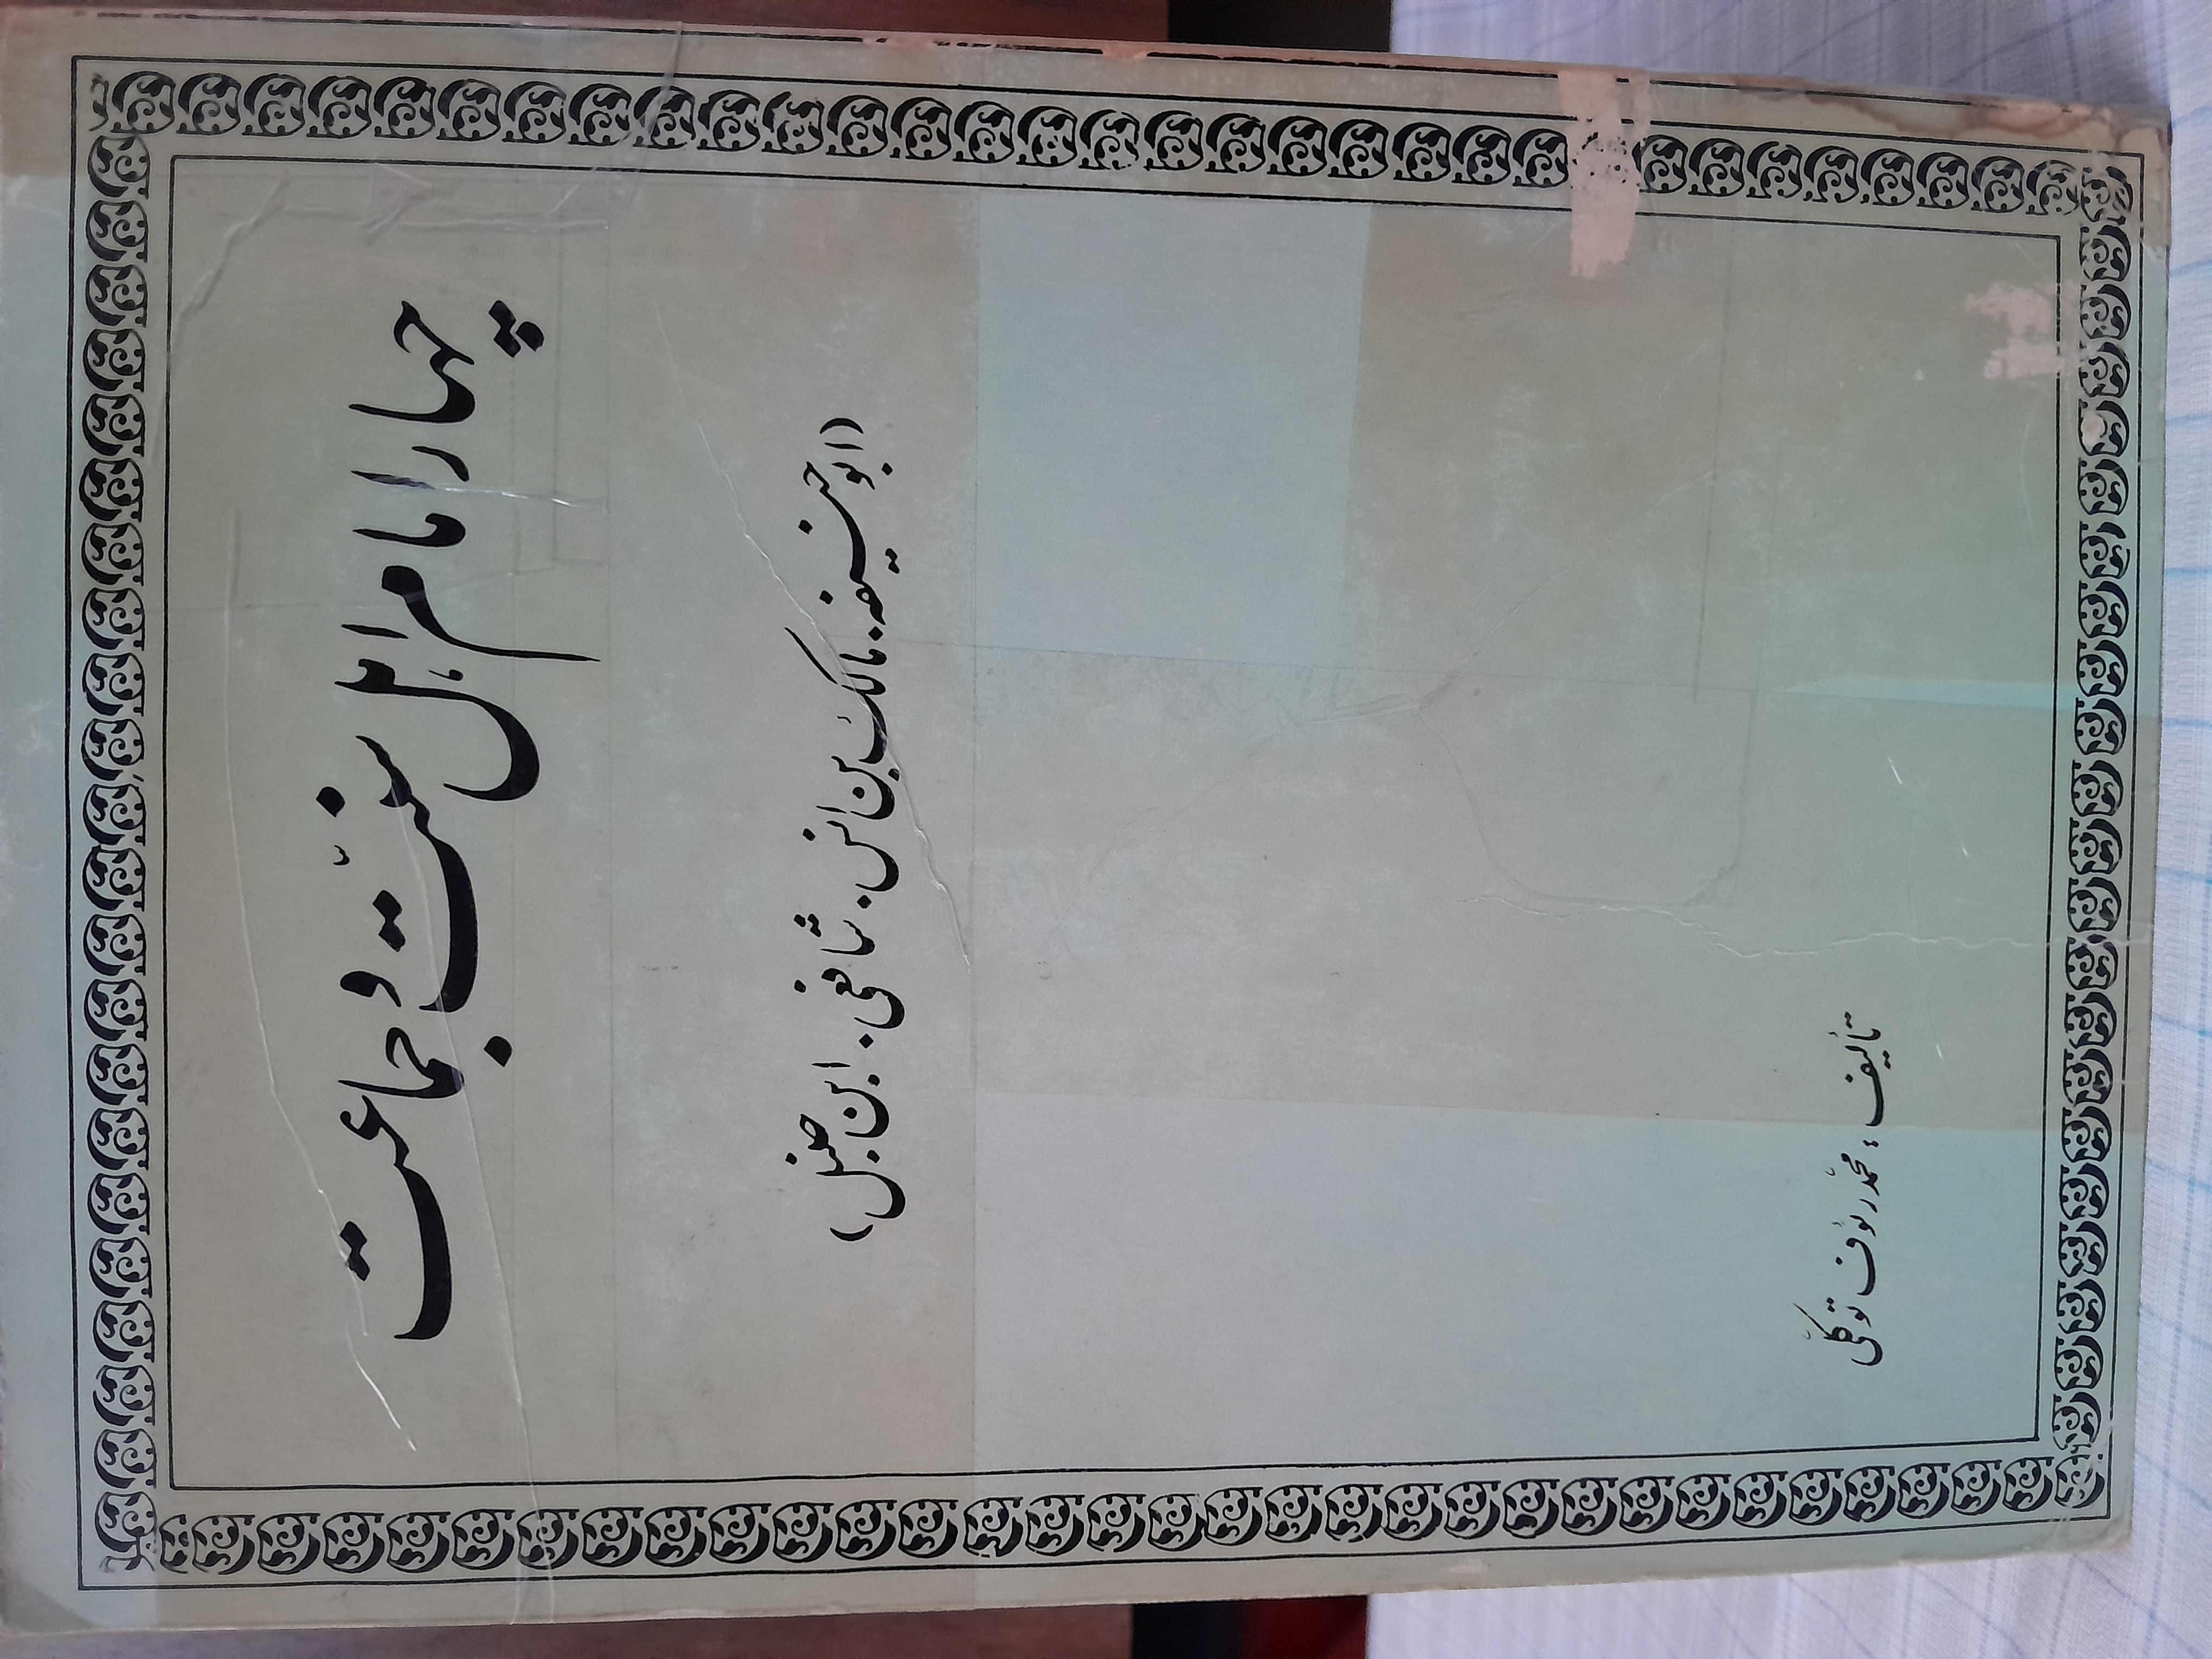 چهار امام اهل سنّت و جماعت
(ابوحنیفه. مالک بن انس. شافعی. ابن حنبل)
تألیف: محمّد رئوف توکّلی